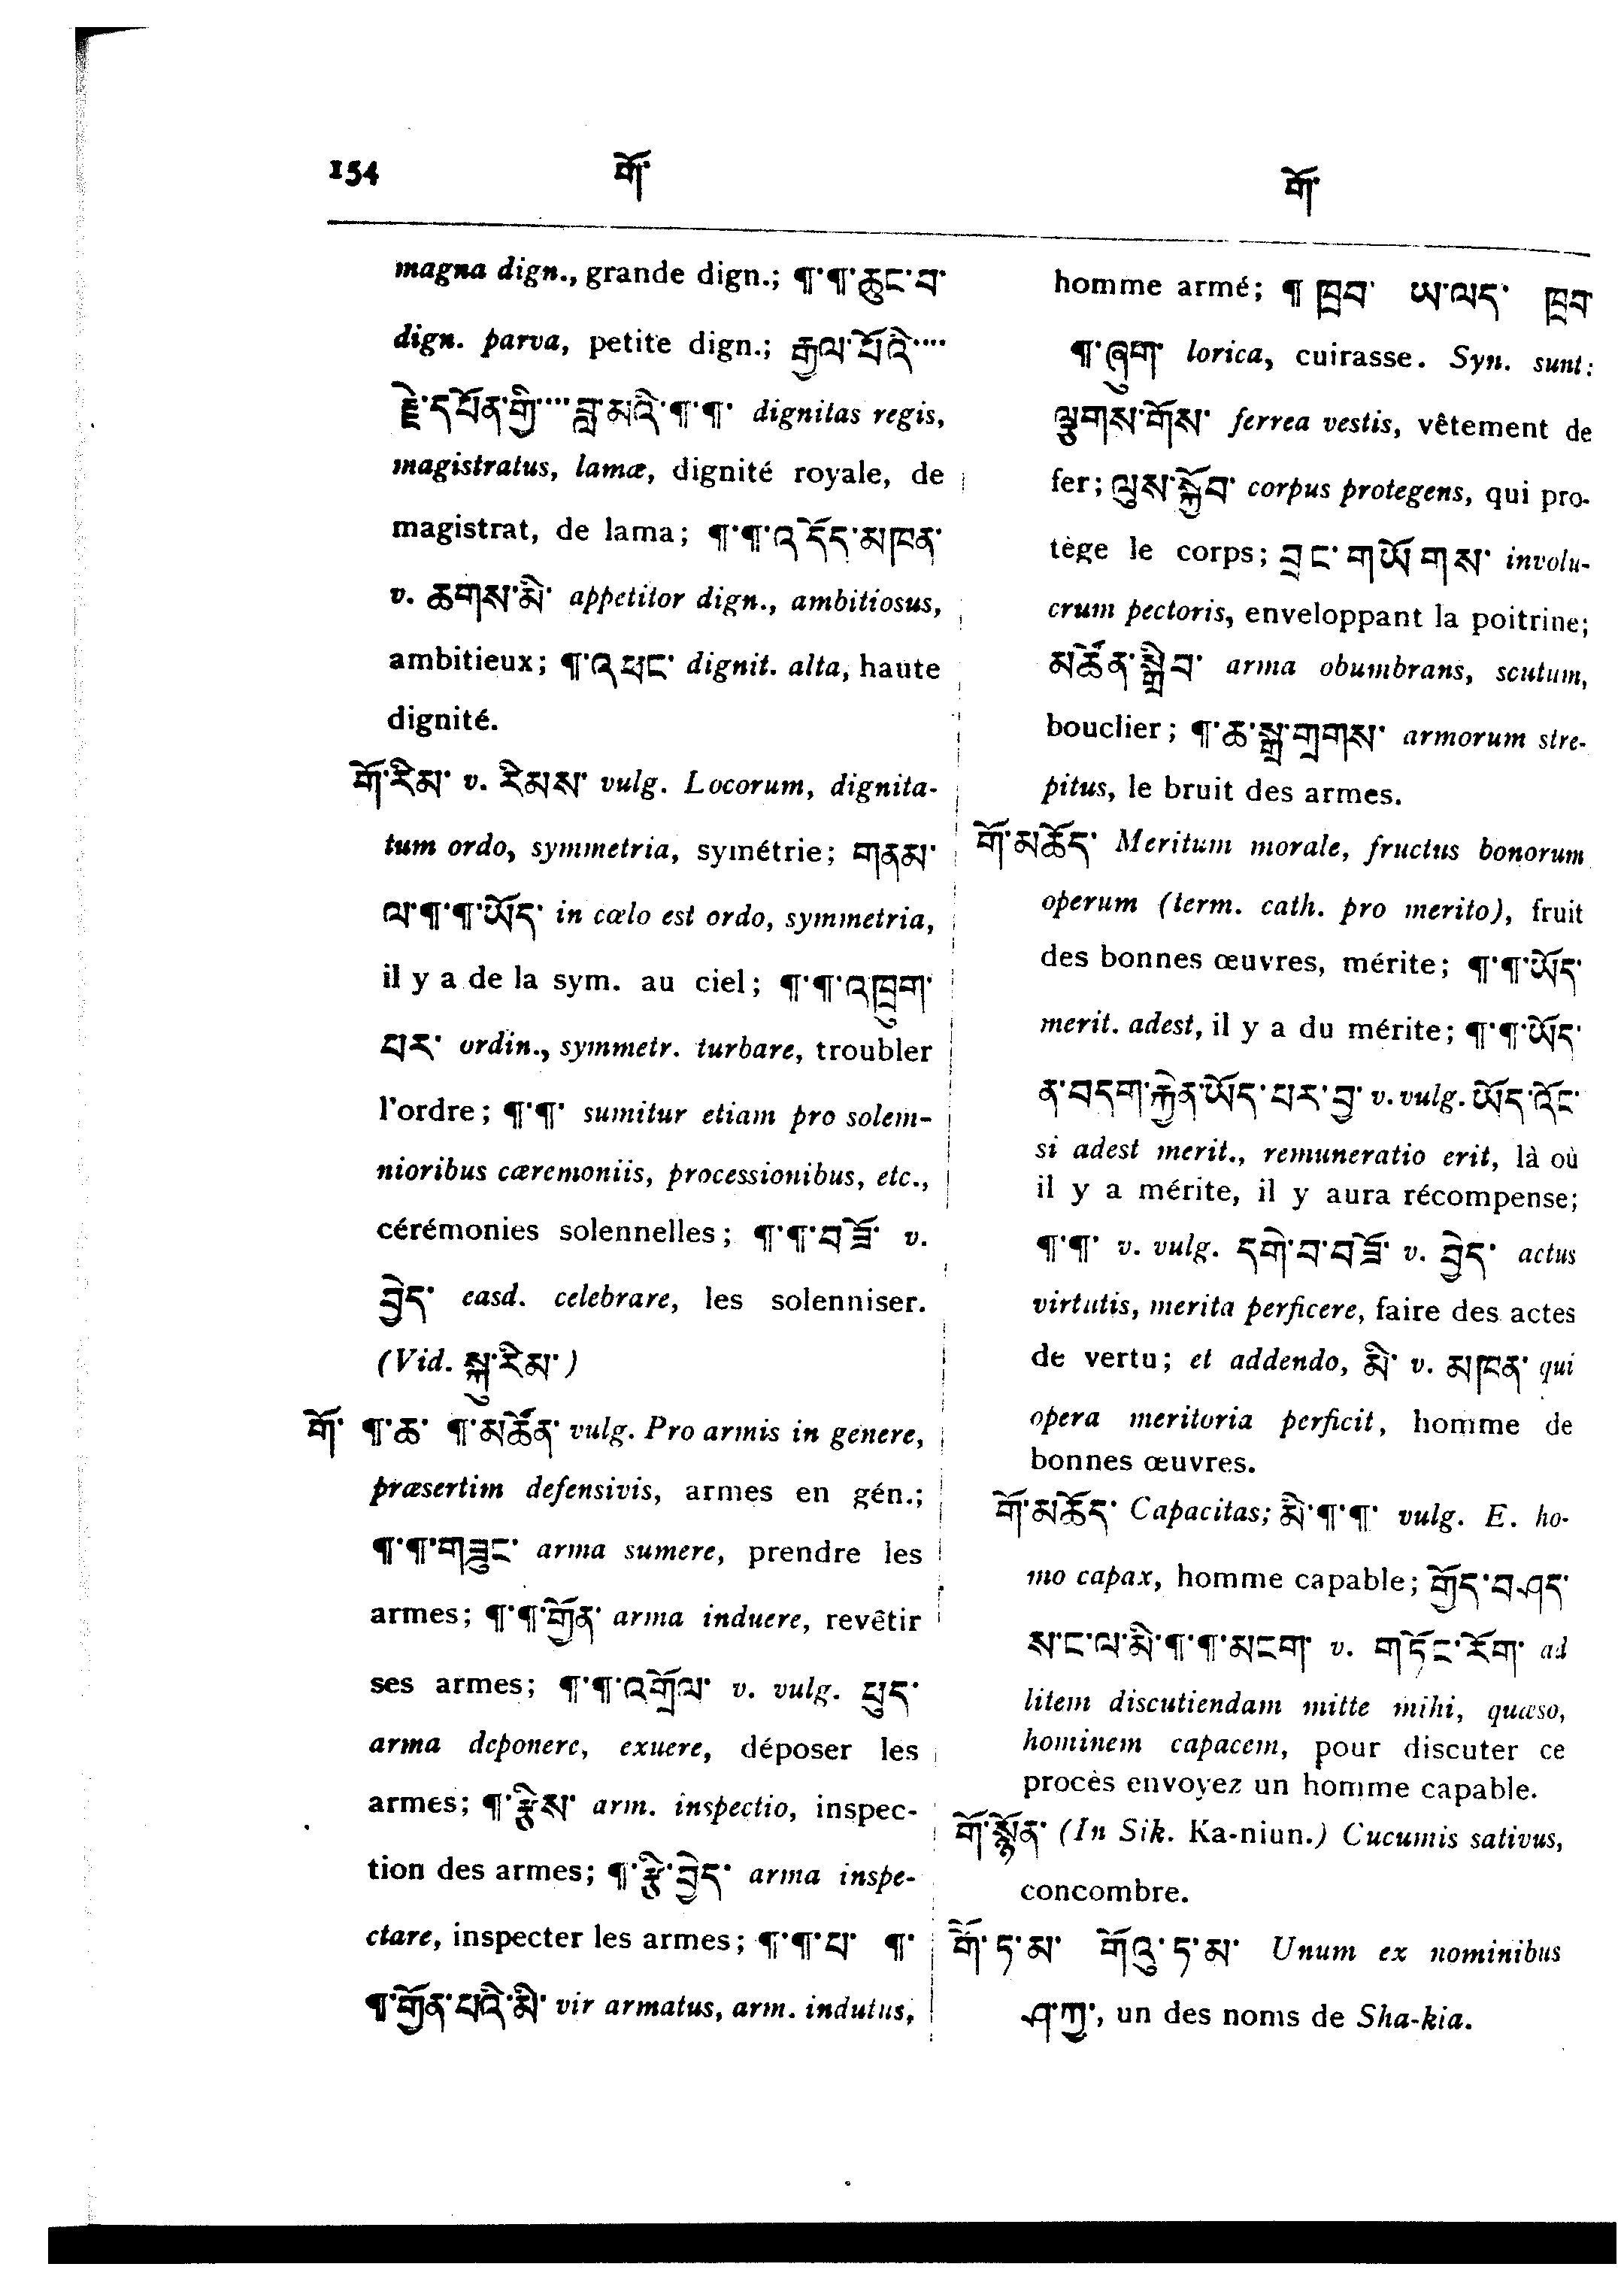 154 གོ་ གོ་
magna dign., grande dign.; ¶་¶་ཆུང་བ་
dign. parva, petite dign.; རྒྱལ་པོའི་····
རྗེ་དཔོན་གྱི་····བླ་མའི་¶་¶་ dignitas regis,
magistratus, lamæ, dignité royale, de
magistrat, de lama; ¶་¶་འདོད་མཁན་
v. ཆགས་མི་ appetitor dign., ambitiosus,
ambitieux; ¶་འཕང་ dignit. alta, haute
dignité.
གོ་རིམ་ v. རིམས་ vulg. Locorum, dignita-
tum ordo, symmetria, symétrie; གནམ་
ལ་¶་¶་ཡོད་ in cœlo est ordo, symmetria,
il y a de la sym. au ciel; ¶་¶་འཁྲུག་
པར་ ordin., symmetr. turbare, troubler
l'ordre; ¶་¶་ sumitur etiam pro solem-
nioribus cæremoniis, processionibus, etc.,
cérémonies solennelles; ¶་¶་བཟོ་ v.
བྱེད་ easd. celebrare, les solenniser.
(Vid. སྐུ་རིམ་)
གོ་ ¶་ཆ་ ¶་མཚོན་ vulg. Pro armis in genere,
præsertim defensivis, armes en gén.;
¶་¶་གཟུང་ arma sumere, prendre les
armes; ¶་¶་གྱོན་ arma induere, revêtir
ses armes; ¶་¶་འགྲོལ་ v. vulg. ཕུད་
arma deponere, exuere, déposer les
armes; ¶་རྩིས་ arm. inspectio, inspec-
tion des armes; ¶་རྩི་བྱེད་ arma inspe-
ctare, inspecter les armes; ¶་¶་པ་ ¶་
¶་གྱོན་པའི་མི་ vir armatus, arm. indutus,
homme armé; ¶ ཁྲབ་ ཨ་ལད་ ཁྲབ
¶་ཞུག་ lorica, cuirasse. Syn. sunt:
ལྕགས་གོས་ ferrea vestis, vêtement de
fer; ལུས་སྐྱོབ་ corpus protegens, qui pro-
tège le corps; བྲང་གཡོགས་ involu-
crum pectoris, enveloppant la poitrine;
མཚོན་སྒྲིབ་ arma obumbrans, scutum,
bouclier; ¶་ཆ་སྒྲ་གྲགས་ armorum stre-
pitus, le bruit des armes.
གོ་མཆོད་ Meritum morale, fructus bonorum
operum (term. cath. pro merito), fruit
des bonnes œuvres, mérite; ¶་¶་ཡོད་
merit. adest, il y a du mérite; ¶་¶་ཡོད་
ན་བདག་རྐྱེན་ཡོད་པར་བྱ་ v. vulg. ཡོད་འོང་
si adest merit., remuneratio erit, là où
il y a mérite, il y aura récompense;
¶་¶་ v. vulg. དགེ་བ་བཟོ་ v. བྱེད་ actus
virtutis, merita perficere, faire des actes
de vertu; et addendo, མི་ v. མཁན་ qui
opera meritoria perficit, homme de
bonnes œuvres.
གོ་མཆོད་ Capacitas; མི་¶་¶་ vulg. E. ho-
mo capax, homme capable; གྱོད་བཤད་
ས་ང་ལ་མི་¶་¶་མངག་ v. གཏོང་རོག་ ad
litem discutiendam mitte mihi, quæso,
hominem capacem, pour discuter ce
procès envoyez un homme capable.
གོ་སྙོན་ (In Sik. Ka-niun.) Cucumis sativus,
concombre.
གོོ་ཏ་མ་ གོའུ་ཏ་མ་ Unum ex nominibus
ཤ་ཀྱ་, un des noms de Sha-kia.